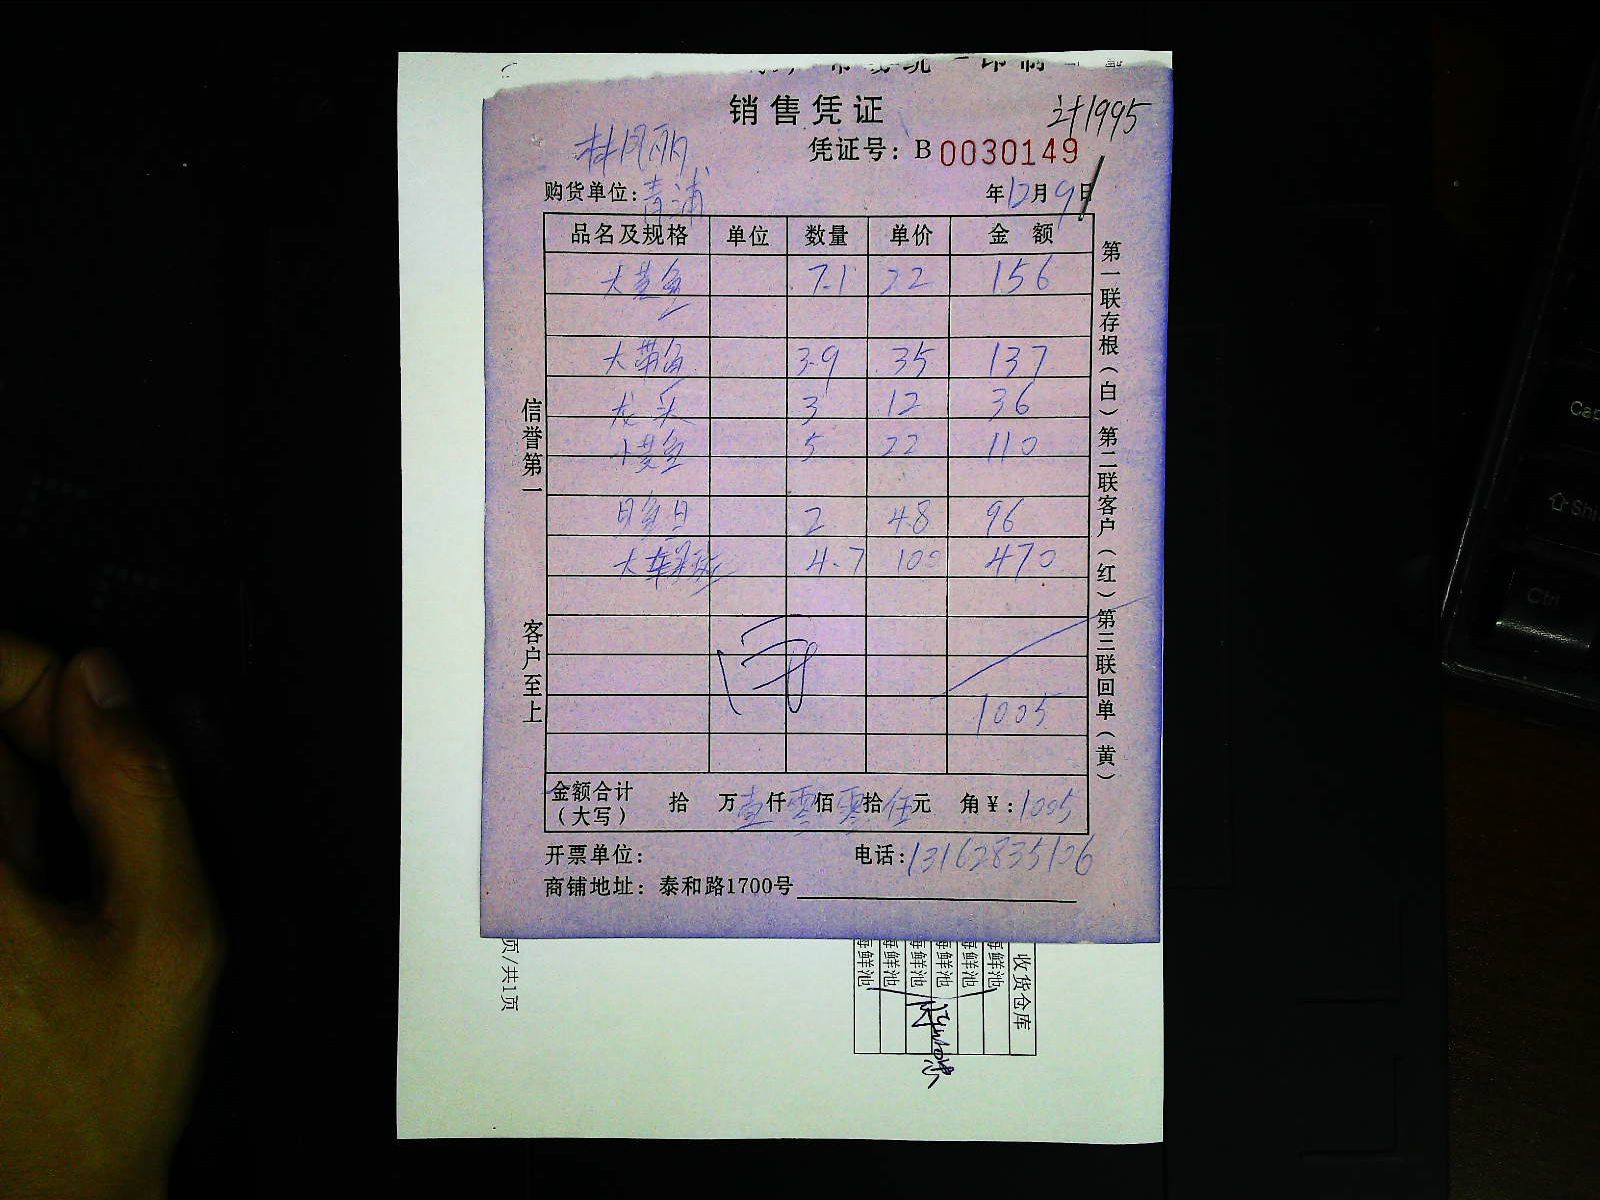 销售凭证
计1995
林凤丽
凭证号：B 0030149
购货单位：青浦 年12月9日
品名及规格 单位 数量 单价 金额
大黄鱼 7.1 22 156
大带鱼 3.9 35 137
龙头 3 12 36
小黄鱼 5 22 110
2 48 96
大 4.7 100 470
1005
金额合计（大写） 拾 万壹仟零佰零拾伍元 角¥：1005
开票单位： 电话：13162835106
商铺地址：泰和路1700号
信誉第一
客户至上
第一联存根（白）第二联客户（红）第三联回单（黄）
页/共1页
收货仓库
海鲜池
海鲜池
海鲜池
海鲜池
海鲜池
海鲜池
Ctrl